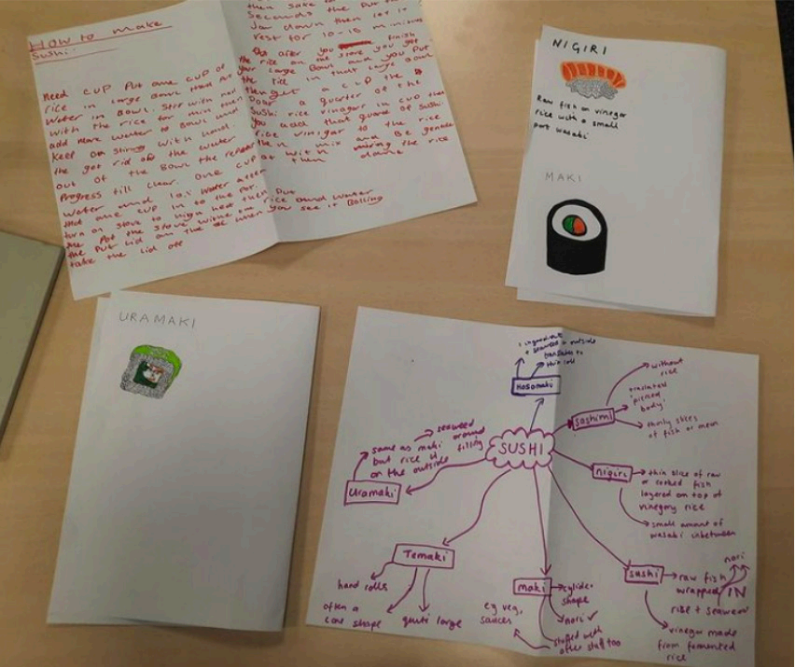 How to make
Sushi:
Need CUP Put one cup of
rice in large bowl then put
water in Bowl. Stir with
with the rice for min then
add more water to Bowl and
Keep on stiring with hand.
the get rid off the water
out of the Bowl the repeat
Progress till clear. One cup
water and
that one cup in to the pot
turn on stove to high heat then
Pot the stove
the put lid on the when you see it Boiling
take the lid off
then
Seconds the put the
down then let it
rest for 10-15 minutes
after you finish
the rice on the stove you get
your large Bowl and you put
the rice in that large bowl
then get a cup the
Poor a quarter of the
Sushi rice vinegar in cup then
you add that quarter of sushi
rice vinigar to the rice
then mix and Be gentle
with mixing the rice
then done
NIGIRI
Raw fish or vinegar
rice with a small
part wasabi
MAKI
URAMAKI
1 ingredient
+ seaweed outside
translates to
thin roll
Hosomaki
SUSHI
sashimi
without
rice
translated
'pierced
body'
thinly slices
of fish or meat
nigiri
thin slice of raw
or cooked fish
layered on top of
vinegary rice
small amount of
wasabi inbetween
sushi
raw fish
wrapped IN
rice + seaweed
nori
vinegar made
from fermented
rice
maki
cylinder
shape
nori
stuffed with
other stuff too
eg veg,
sauces
Temaki
hand rolls
often a
cone shape
quite large
Uramaki
same as maki
but rice is
on the outside
seaweed
around
filling